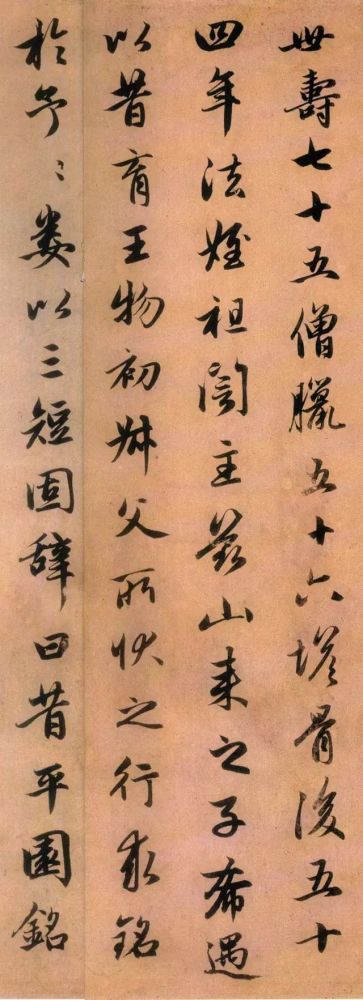 世壽七十五僧臘五十六塔骨後五十
四年法姪祖誾主茲山来之子希遇
以昔育王物初叔父所狀之行求銘
於予〻婁以三短固辭曰昔平園銘